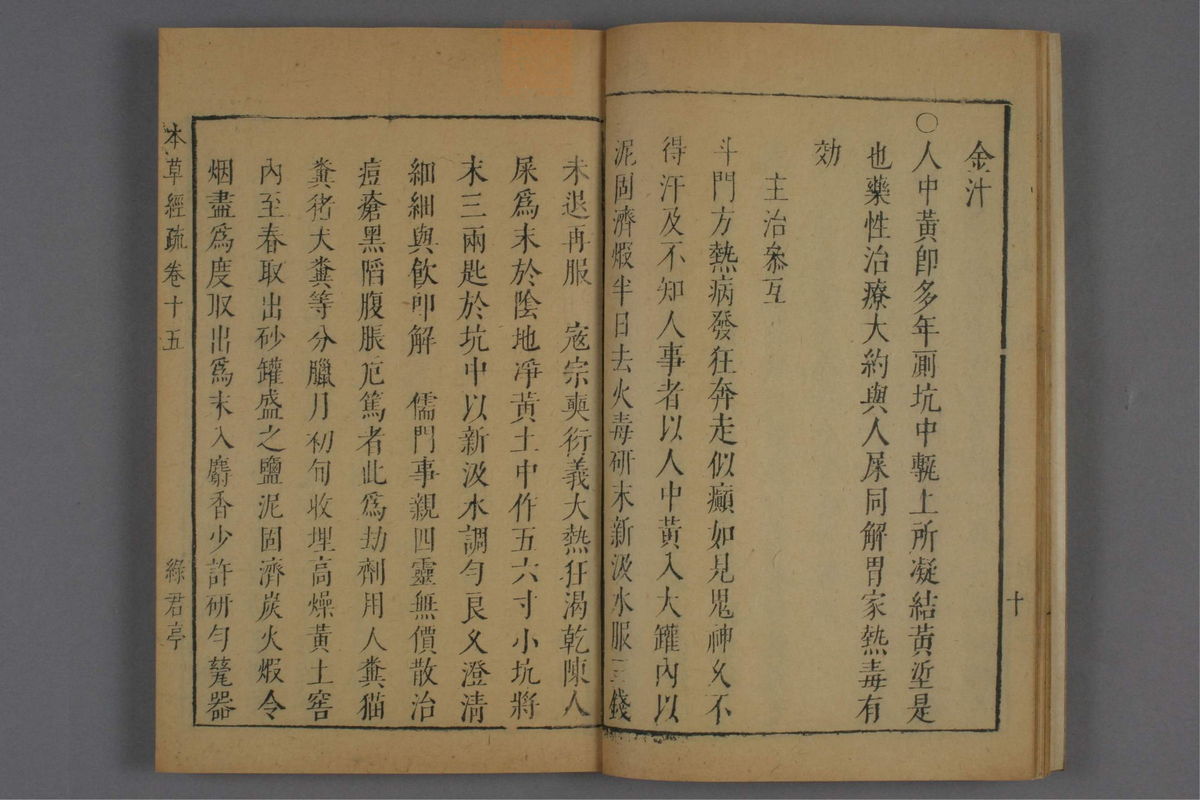 十
金汁
○人中黃卽多年厠坑中甎上所凝結黃垽是
也藥性治療大約與人屎同解胃家熱毒有
効
主治叅互
斗門方熱病發狂奔走似癲如見鬼神久不
得汗及不知人事者以人中黃入大罐內以
泥固濟煆半日去火毒硏末新汲水服三錢
未退再服　寇宗奭衍義大熱狂渴乾陳人
屎爲末於陰地凈黃土中作五六寸小坑將
末三兩匙於坑中以新汲水調勻良久澄清
細細與飮卽解　儒門事親四靈無價散治
痘瘡黑陷腹脹危篤者此爲劫劑用人糞猫
糞猪犬糞等分臘月初旬收埋高燥黃土窖
內至春取出砂罐盛之鹽泥固濟炭火煆令
烟盡爲度取出爲末入麝香少許硏勻甆器
本草經疏卷十五
綠君亭